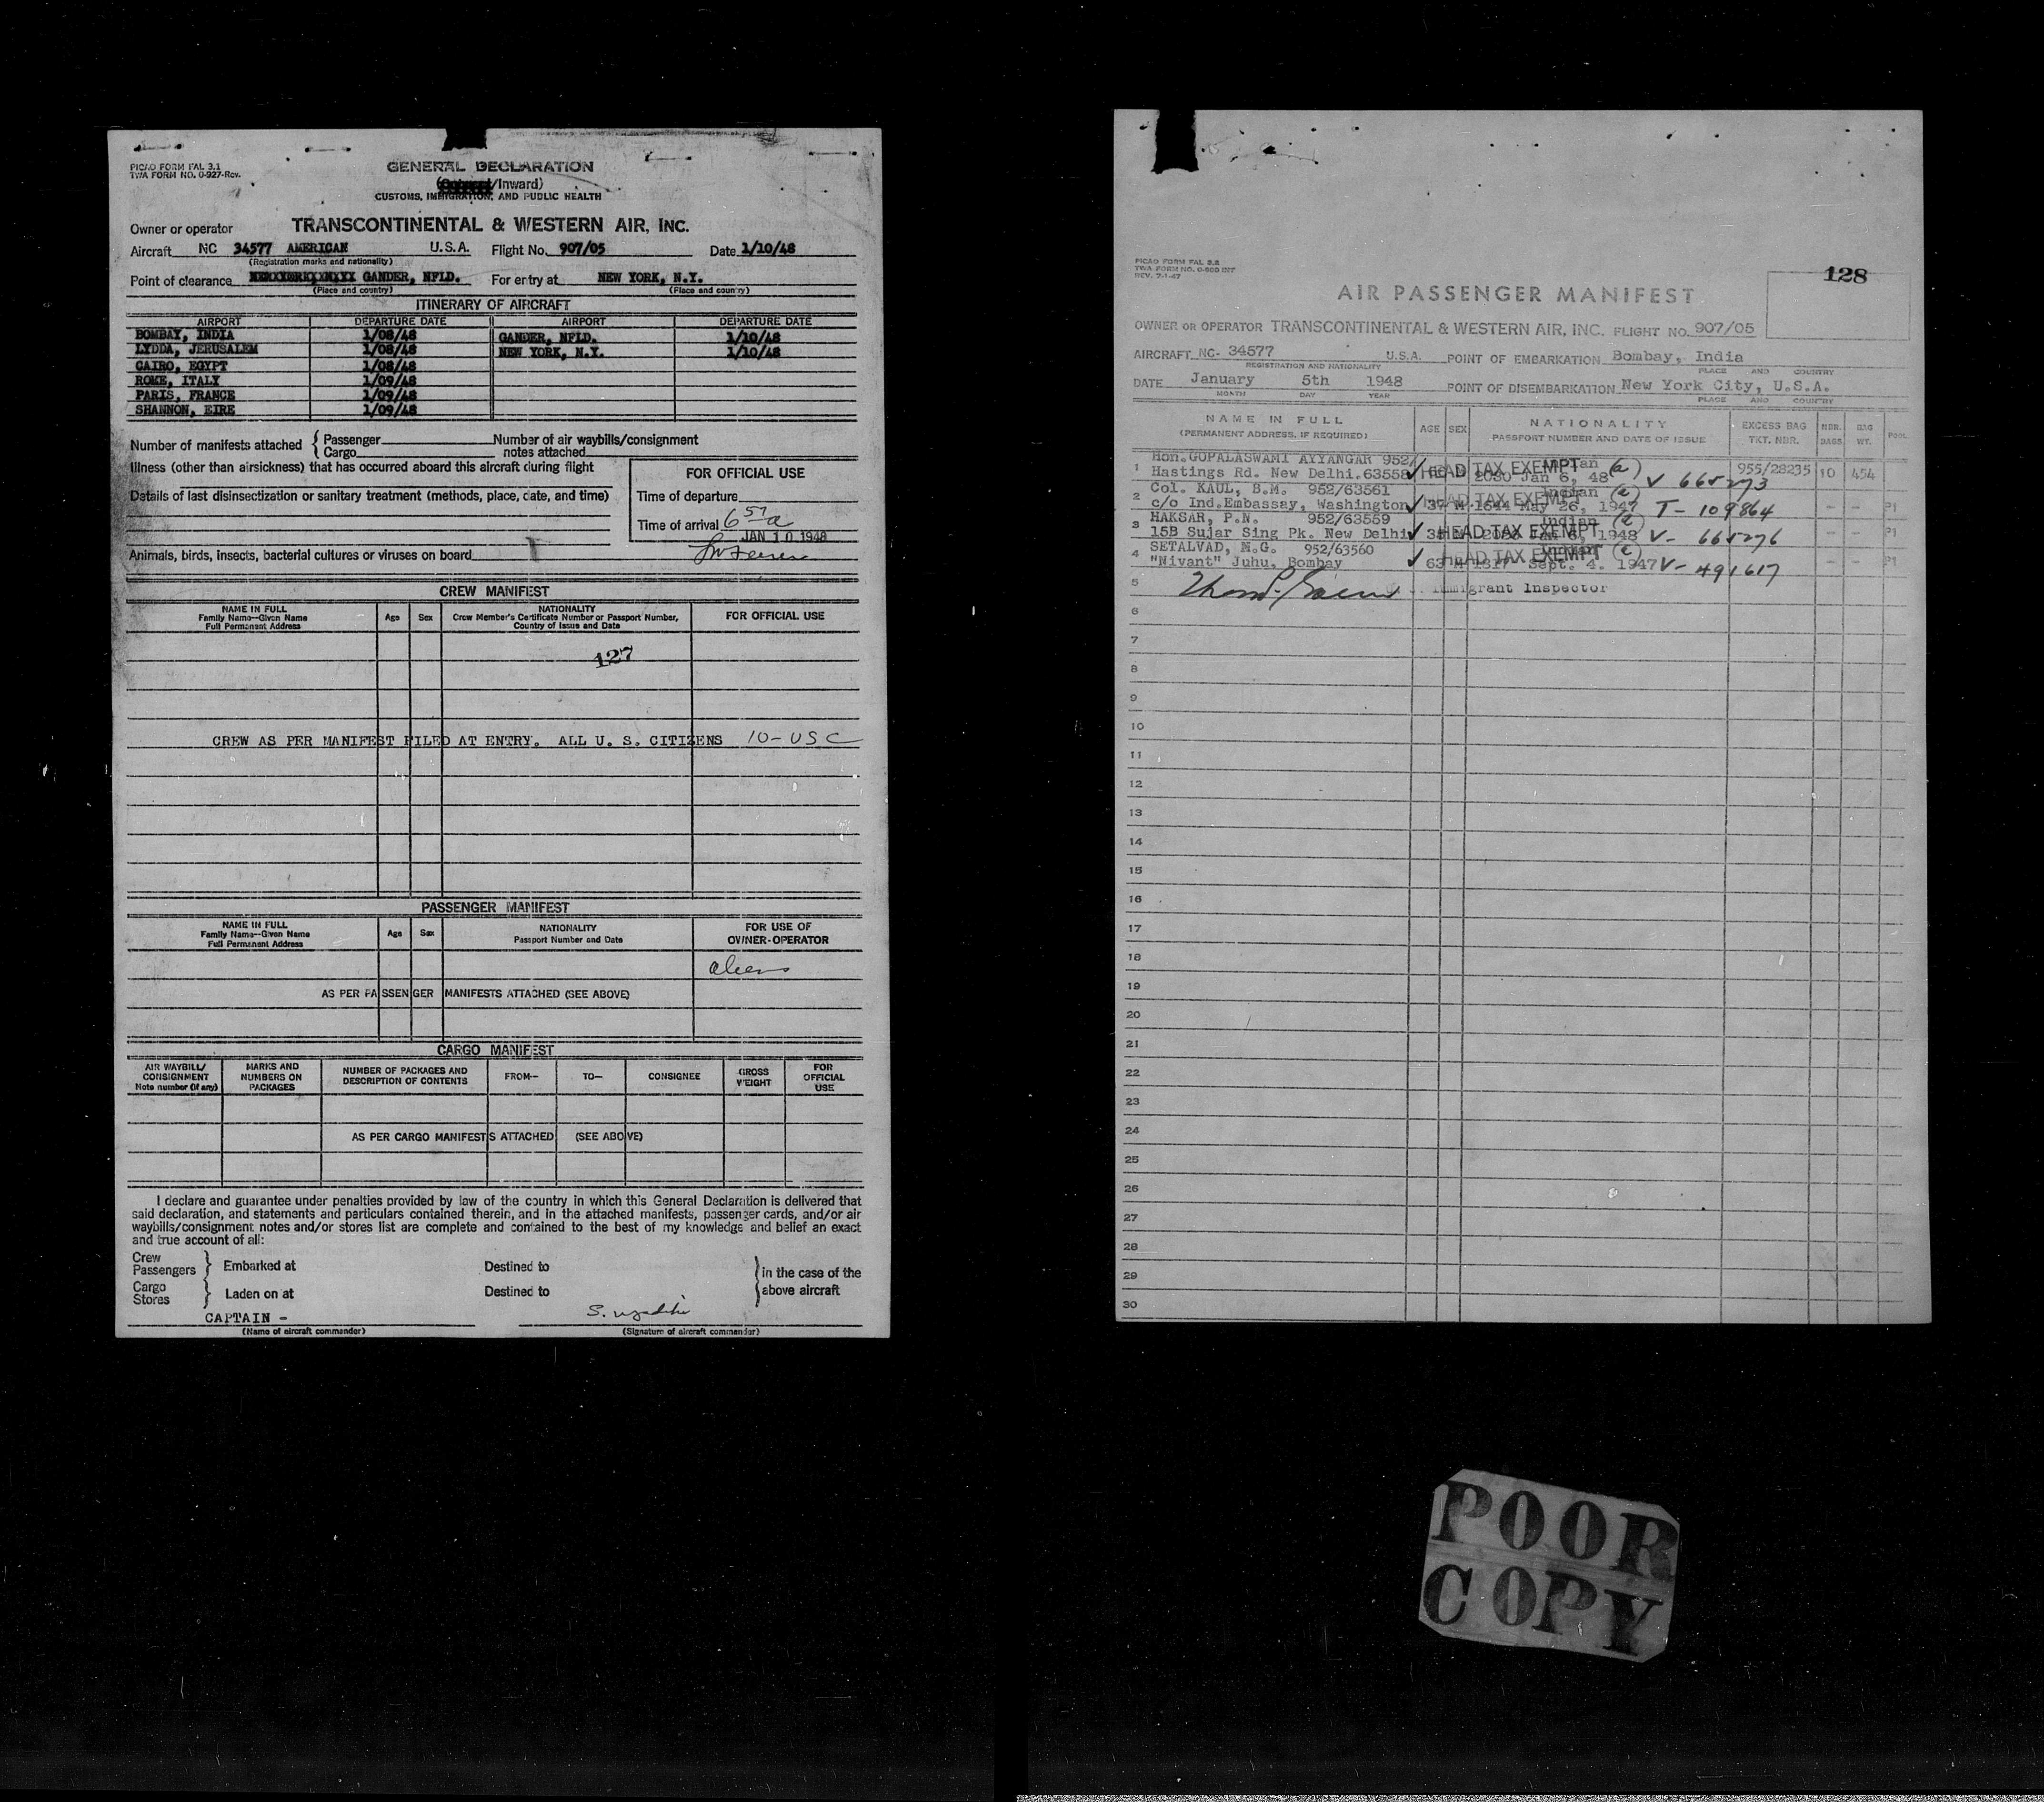 PICAO FORM FAL 3.1
TWA FORM NO. 0-927-Rev.
GENERAL DECLARATION
/Inward)
CUSTOMS, IMMIGRATION, AND PUBLIC HEALTH
Owner or operator TRANSCONTINENTAL & WESTERN AIR, INC.
Aircraft NC 34577 AMERICAN U.S.A. Flight No. 907/05 Date 1/10/48
(Registration marks and nationality)
Point of clearance GANDER, NFLD. For entry at NEW YORK, N.Y.
(Place and country) (Place and country)
ITINERARY OF AIRCRAFT
AIRPORT DEPARTURE DATE AIRPORT DEPARTURE DATE
BOMBAY, INDIA 1/08/48 GANDER, NFLD. 1/10/48
LYDDA, JERUSALEM 1/08/48 NEW YORK, N.Y. 1/10/48
CAIRO, EGYPT 1/08/48
ROME, ITALY 1/09/48
PARIS, FRANCE 1/09/48
SHANNON, EIRE 1/09/48
Number of manifests attached { Passenger Number of air waybills/consignment
Cargo notes attached
Illness (other than airsickness) that has occurred aboard this aircraft during flight
FOR OFFICIAL USE
Details of last disinsectization or sanitary treatment (methods, place, date, and time)
Time of departure
Time of arrival 6 57 a
JAN 10 1948
Animals, birds, insects, bacterial cultures or viruses on board
CREW MANIFEST
NAME IN FULL
Family Name--Given Name
Full Permanent Address
Age Sex
NATIONALITY
Crew Member's Certificate Number or Passport Number,
Country of Issue and Date
FOR OFFICIAL USE
127
CREW AS PER MANIFEST FILED AT ENTRY. ALL U. S. CITIZENS 10-USC
PASSENGER MANIFEST
NAME IN FULL
Family Name--Given Name
Full Permanent Address
Age Sex
NATIONALITY
Passport Number and Date
FOR USE OF
OWNER-OPERATOR
aliens
AS PER PASSENGER MANIFESTS ATTACHED (SEE ABOVE)
CARGO MANIFEST
AIR WAYBILL/
CONSIGNMENT
Note number (if any)
MARKS AND
NUMBERS ON
PACKAGES
NUMBER OF PACKAGES AND
DESCRIPTION OF CONTENTS
FROM-- TO-- CONSIGNEE
GROSS
WEIGHT
FOR
OFFICIAL
USE
AS PER CARGO MANIFESTS ATTACHED (SEE ABOVE)
I declare and guarantee under penalties provided by law of the country in which this General Declaration is delivered that
said declaration, and statements and particulars contained therein, and in the attached manifests, passenger cards, and/or air
waybills/consignment notes and/or stores list are complete and contained to the best of my knowledge and belief an exact
and true account of all:
Crew
Passengers } Embarked at Destined to
Cargo
Stores } Laden on at Destined to
} in the case of the
above aircraft
CAPTAIN -
(Name of aircraft commander) (Signature of aircraft commander)
PICAO FORM FAL 3.2
REV. 7-1-47
128
AIR PASSENGER MANIFEST
OWNER OR OPERATOR TRANSCONTINENTAL & WESTERN AIR, INC. FLIGHT NO. 907/05
AIRCRAFT NC- 34577 U.S.A. POINT OF EMBARKATION Bombay, India
REGISTRATION AND NATIONALITY PLACE AND COUNTRY
DATE January 5th 1948 POINT OF DISEMBARKATION New York City, U.S.A.
MONTH DAY YEAR PLACE AND COUNTRY
NAME IN FULL
(PERMANENT ADDRESS, IF REQUIRED)
AGE SEX
NATIONALITY
PASSPORT NUMBER AND DATE OF ISSUE
EXCESS BAG
TKT. NBR.
NBR.
BAGS
BAG
WT.
POOL
1 Hon. GOPALASWAMI AYYANGAR 952/ HEAD TAX EXEMPT (a) 955/28235 10 454
Hastings Rd. New Delhi. 63558 2030 Jan 6, 48 V 665273
2 Col. KAUL, B.M. 952/63561 HEAD TAX EXEMPT Indian (a)
c/o Ind.Embassay, Washington 37 M 1644 May 26, 1947 T- 109864 - - P1
3 HAKSAR, P.N. 952/63559 HEAD TAX EXEMPT Indian
15B Sujar Sing Pk. New Delhi 1948 V- 665276 - - P1
4 SETALVAD, M.G. 952/63560 HEAD TAX EXEMPT
"Nivant" Juhu, Bombay 63 M 1317 Sept. 4. 1947 V- 491617 - - P1
5 Immigrant Inspector
6
7
8
9
10
11
12
13
14
15
16
17
18
19
20
21
22
23
24
25
26
27
28
29
30
POOR
COPY